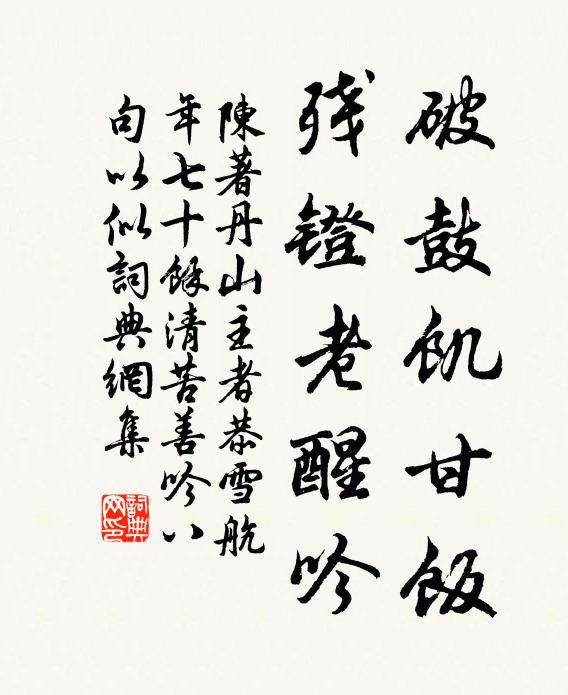 破鼓飢甘飯
残鐙老醒吟
陳著丹山主者恭雪航
年七十餘清苦善吟八
句以似詞典網集
詞典
网印